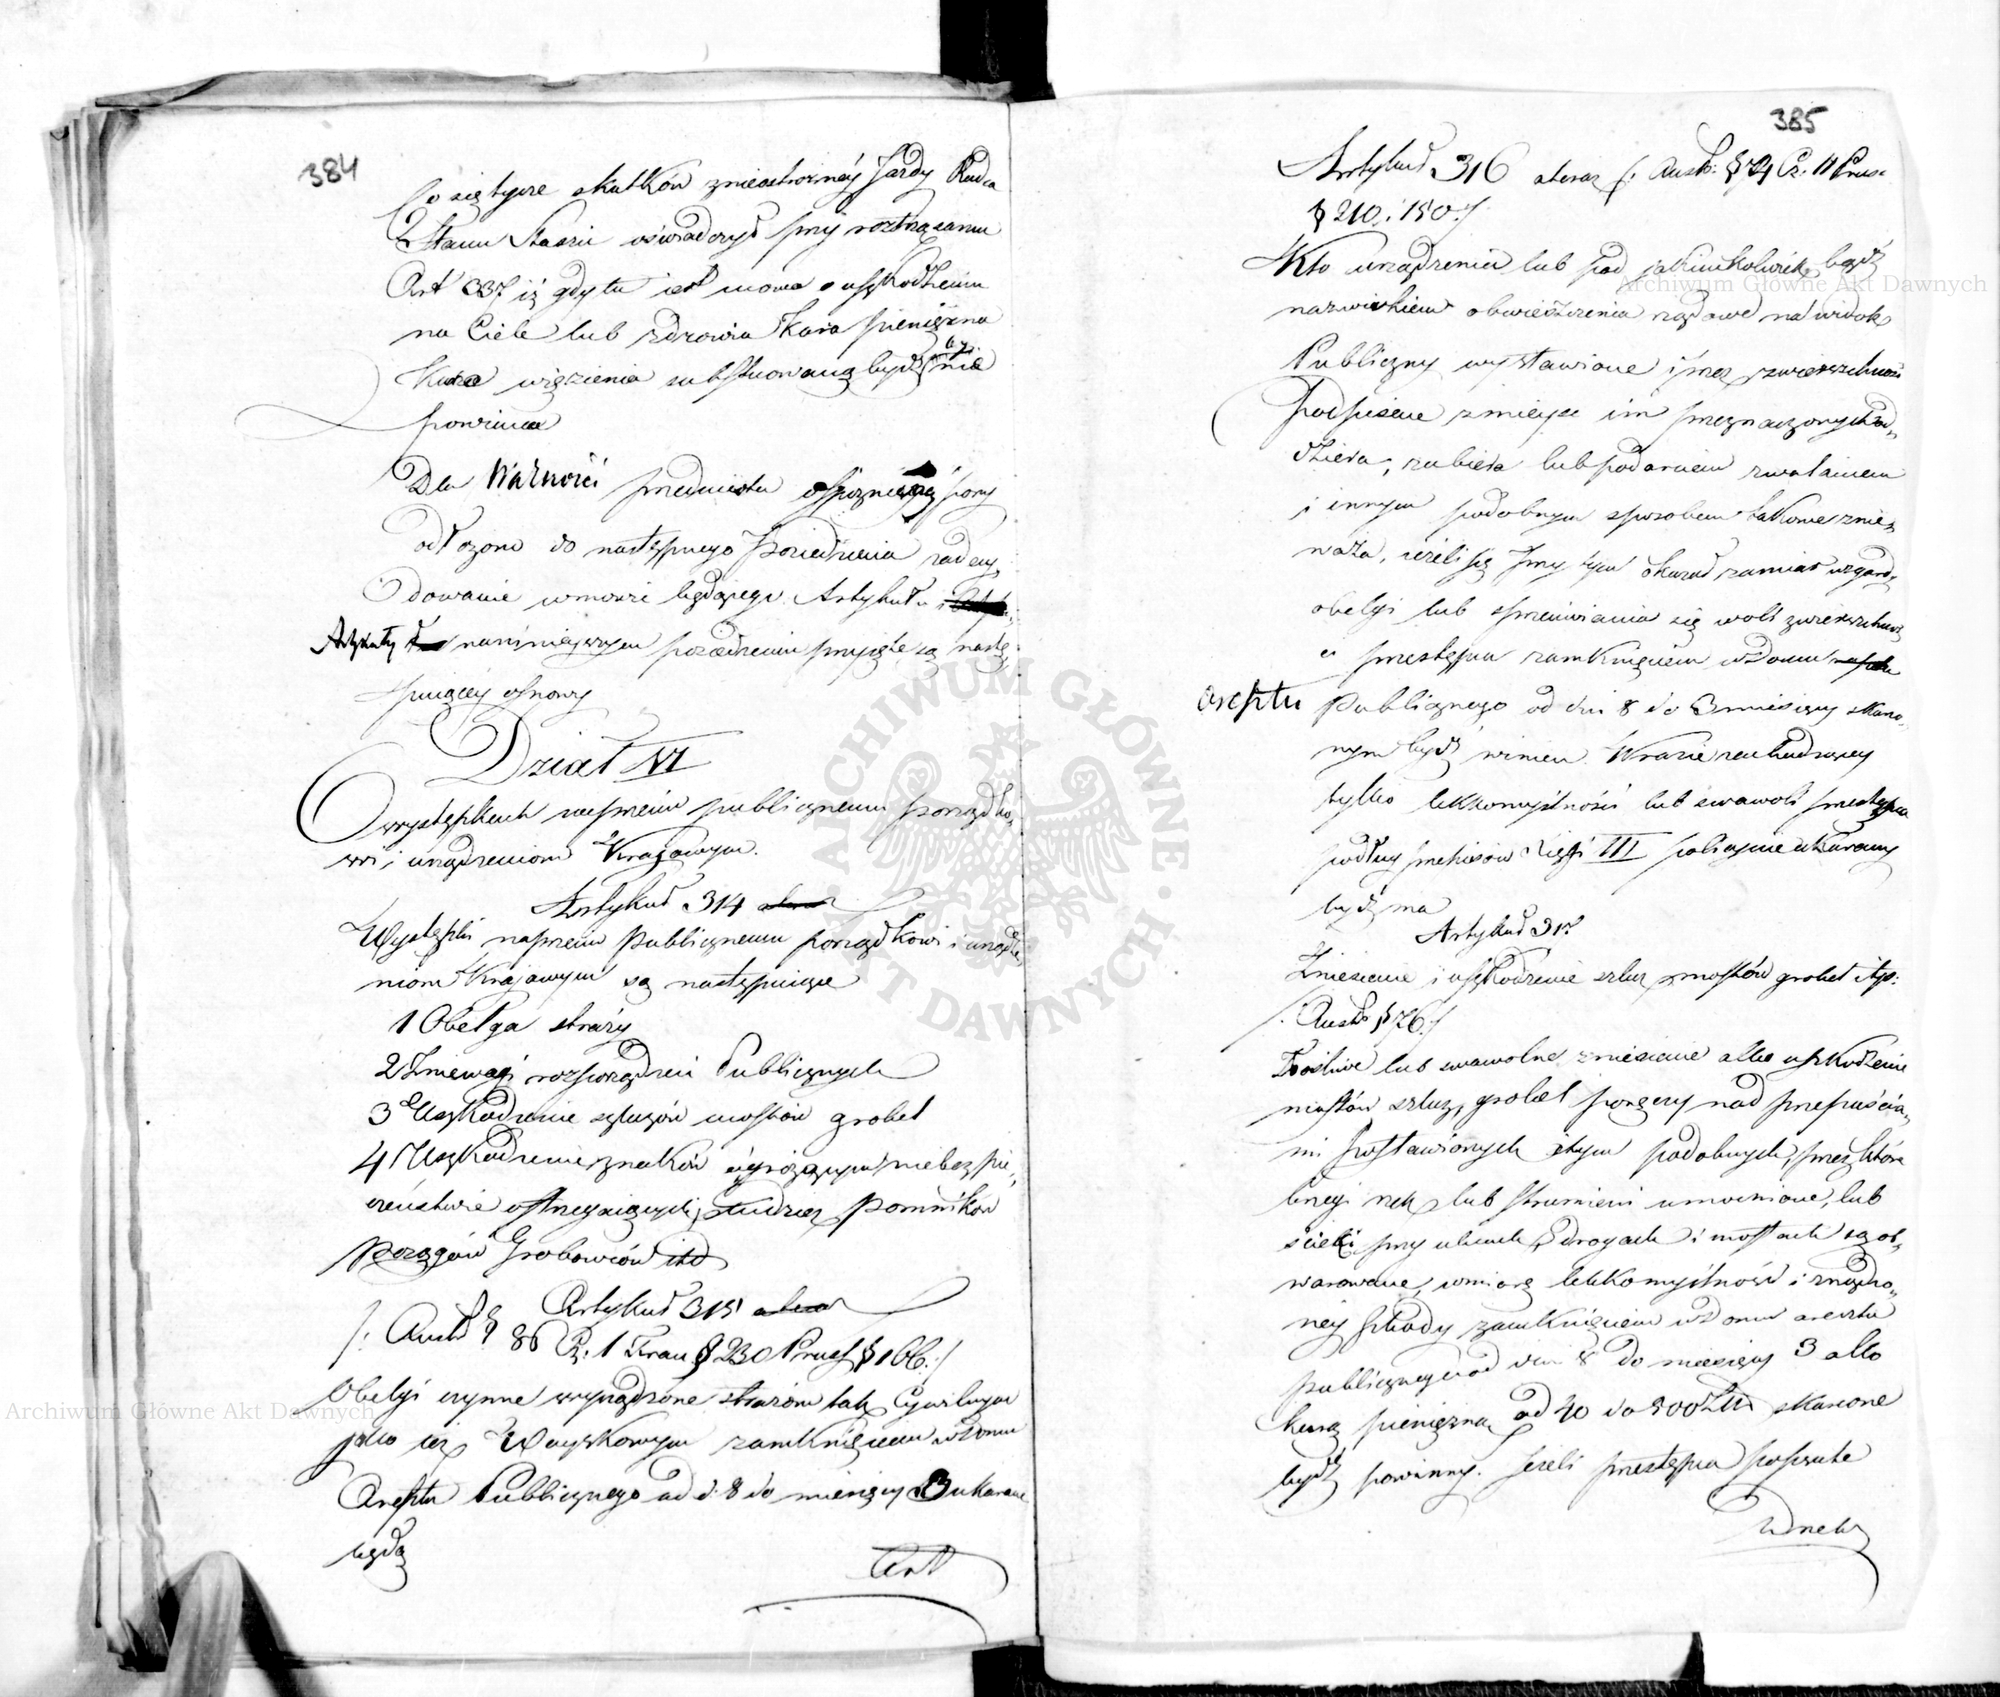 384
Co się tycze skutków znieostrożnéy Jazdy Radca
Stanu Staszic oświadczył przy roztrząsaniu
Art 337 iż gdy tu iest mowa o uszkodzeniu
na Ciele lub zdrowiu kara pieniężna
karze więzienia substuowaną bydź nie
powinna
Dla Ważności przedmiotu i spóźnionej pory
odłożono do następnego Posiedzenia
dowanie wmowie będącego Artykułu
Artykuły na ninieyszym posiedzeniu przyięte są nastę
puiącey osnowy
Dział VI
O występkach naprzeciw publicznemu porządko„
wi i urządzeniom Kraiowym.
Artykuł 314
Występki naprzeciw Publicznemu porządkowi i urządze
niom Kraiowym są następuiące
1 Obelga straży
2 Zniewagi rozporządzeń Publicznych
3 Uszkodzenie szluzów mostów grobel
4 Uszkodzenie znaków o grożącym niebezpie„
czeństwie ostrzegaiących, tudzież Pomników
Posągów Grobowców itd
Artykuł 315
/. Austr § 86 Cz. 1 Fran § 230 Prus § 166 ./
Obelgi czynne wyrządzone strażom tak Cywilnym
jako też Woyskowym zamknięciem w domu
Aresztu Publicznego od d. 8 do miesięcy 3 ukarane
będą
Art
385
Artykuł 316 /. Austr: § 72 Cz. II Prus.
§ 210 i 150 ./
Kto urządzenia lub pod jakimkolwiek bądź
nazwiskiem obwieszczenia rządowe na widok
Publiczny wystawione i przez zwierzchność
Podpisane z mieysc im przeznaczonych od„
dziera, zabiera lub podarciem zwalaniem
i innym podobnym sposobem takowe znie„
waża, ieżeli się przy tym okazał zamiar wzgardy
obelgi lub sprzeciwiania się woli zwierzchności
przestępca zamknięciem w domu
aresztu Publicznego od dni 8 do 3 miesięcy skara„
nym bydź winien. W razie zachodzącey
tylko lekkomyślności lub swawoli przestępca
podług przepisów Księgi III policyjnie ukarany
bydź ma
Artykuł 317
Zniesienie i uszkodzenie szluz mostów grobel itp:
/. Austr § 76 ./
Złośliwe lub swawolne zniesienie albo uszkodzenie
mostów szluz, grobel poręczy nad przepaścia„
mi postawionych i tym podobnych, przez które
brzegi rzek lub strumieni umocnione, lub
ścieżki przy ulicach, drogach i mostach są ob„
warowane, w miarę lekkomyślności i znaczno„
ney szkody zamknięciem w domu aresztu
publicznego od dni 8 do miesięcy 3 albo
karą pieniężną od 40 do 500 Złt skarcone
bydź powinny. Jeżeli przestępca